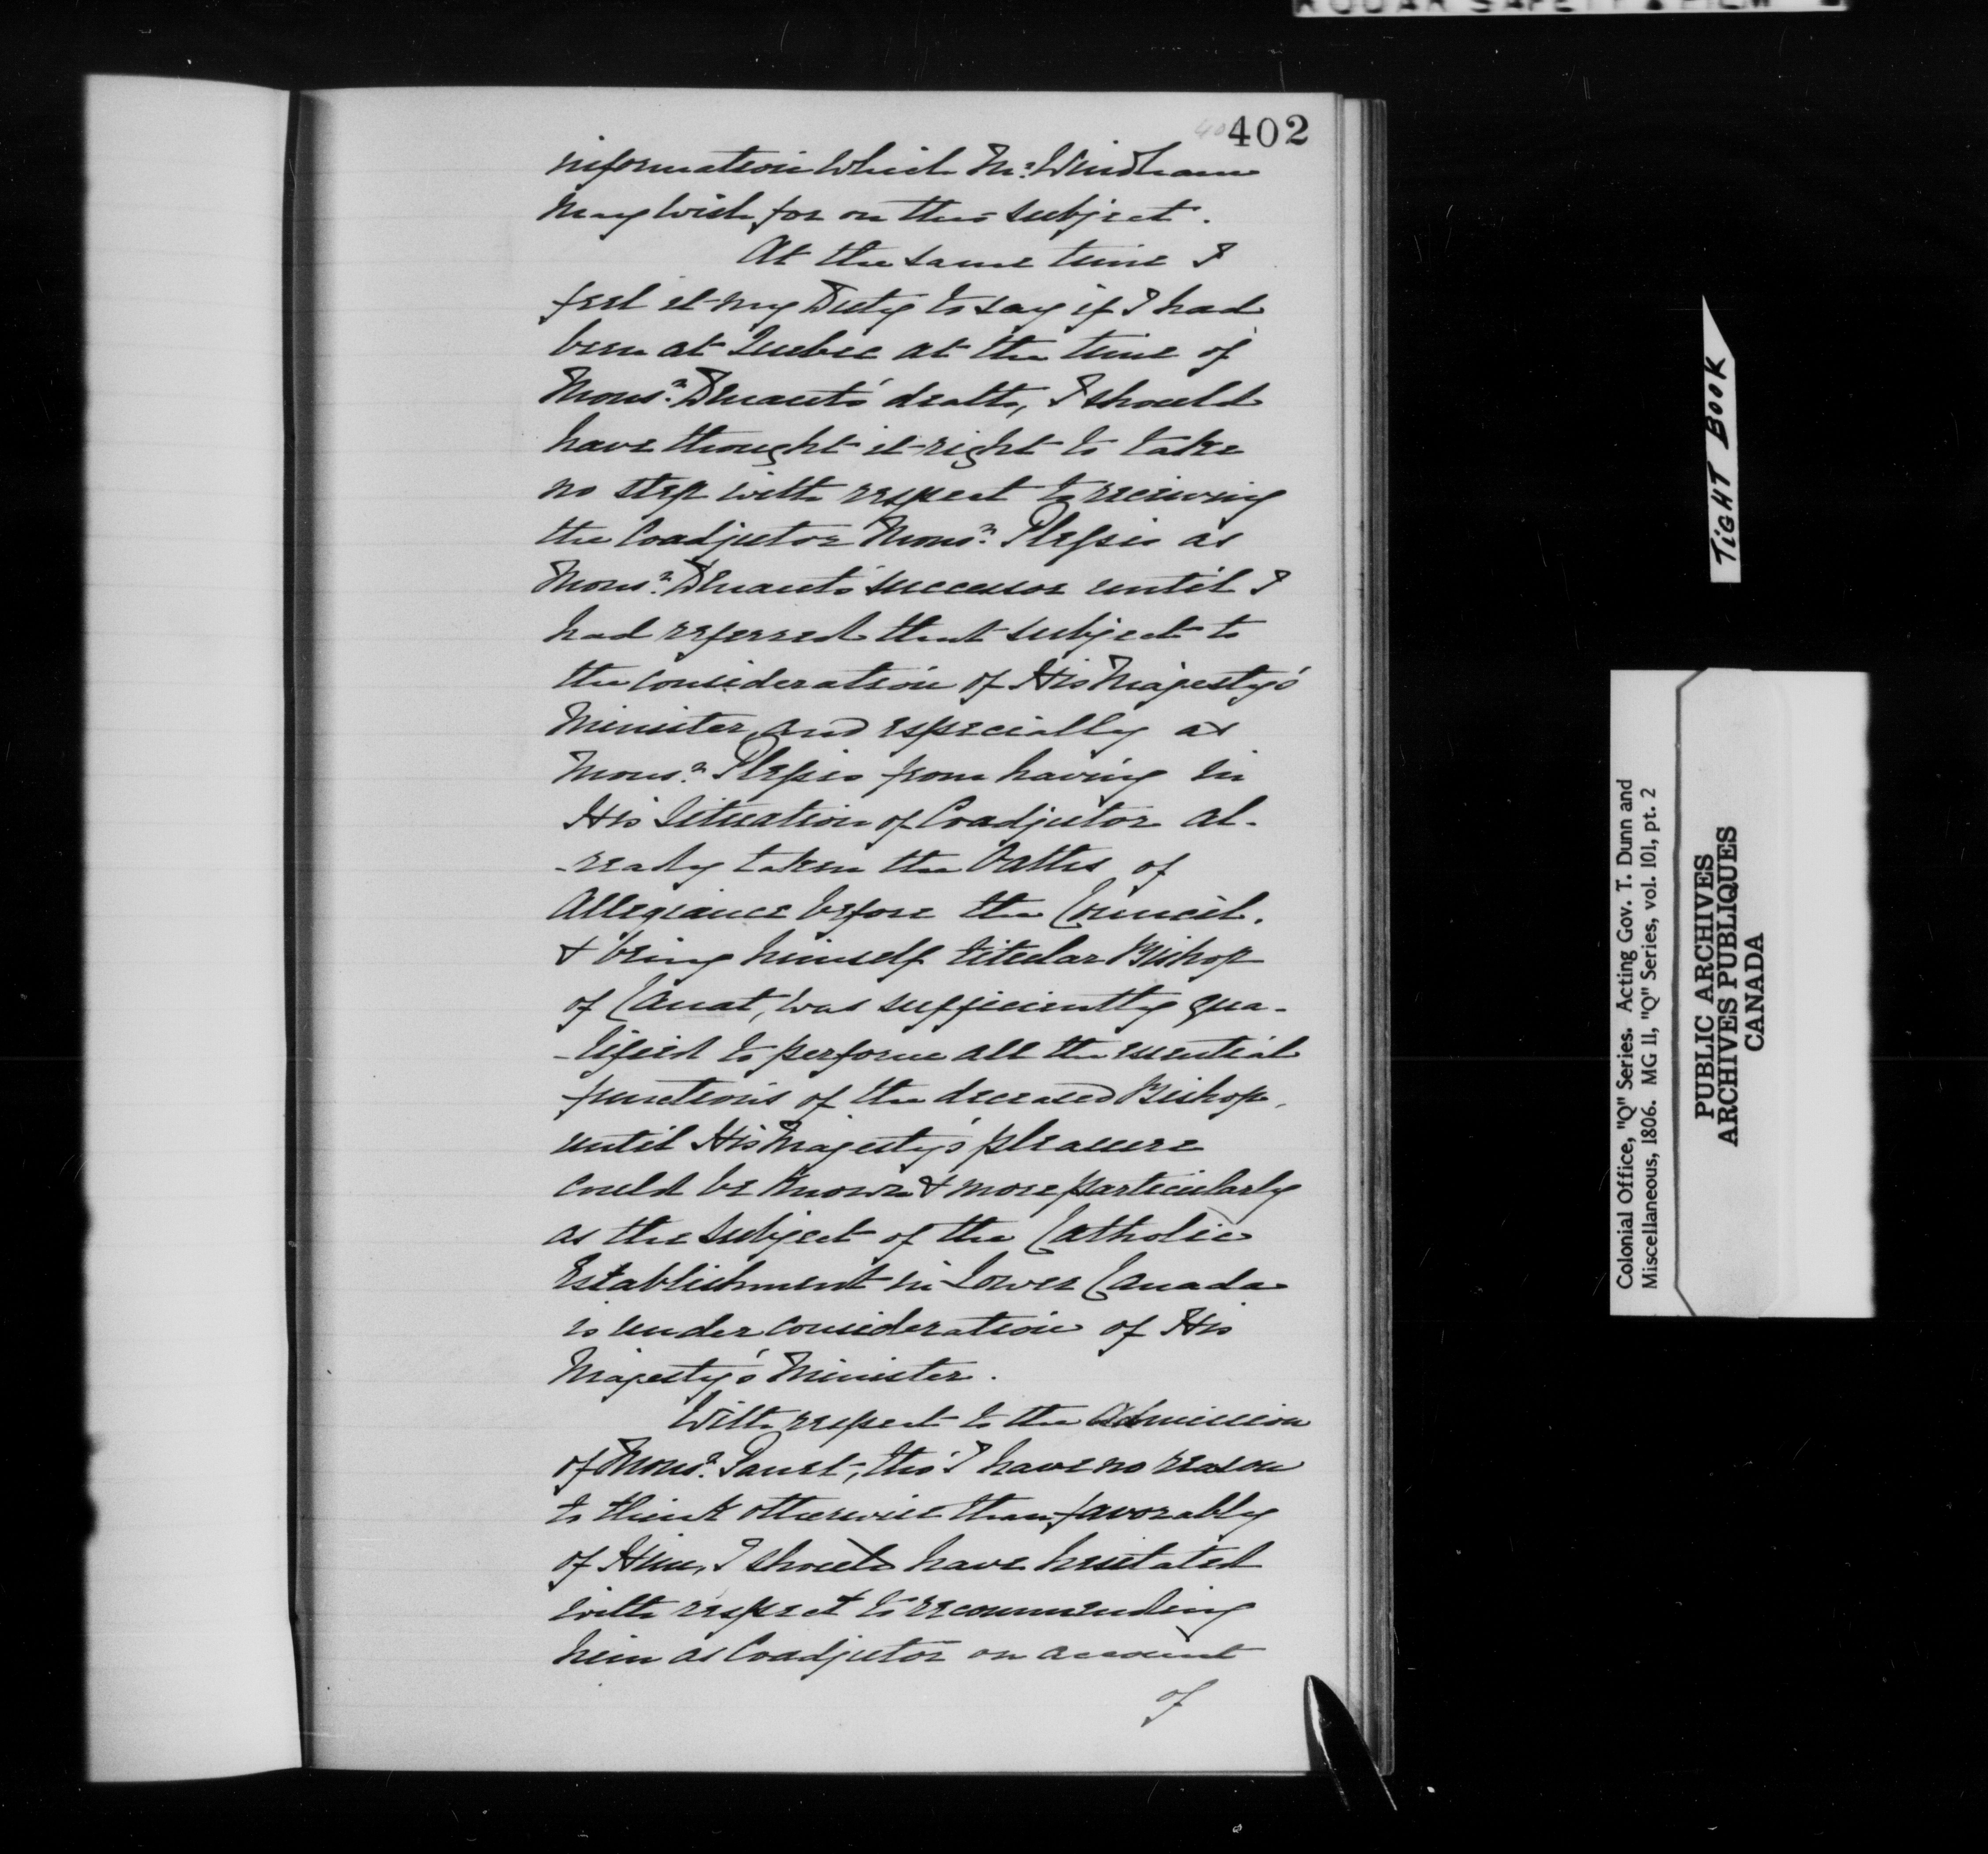 402
information which Mr. Windham
may wish for on this subject.
At the same time I
feel it my Duty to say if I had
been at Quebec at the time of
Monsr. Denaut's death, I should
have thought it right to take
no step with respect to receiving
the Coadjutor Monsr. Plessis as
Monsr. Denaut's successor until I
had referred that subject to
the consideration of His Majesty's
Minister, and especially as
Monsr. Plessis from having in
His Situation of Coadjutor al-
-ready taken the Oaths of
Allegiance before the Council,
& being himself titular Bishop
of Canat, was sufficiently qua-
-lified to perform all the essential
functions of the deceased Bishop,
until His Majesty's pleasure
could be known & more particularly
as the subject of the Catholic
Establishment in Lower Canada
is under consideration of His
Majesty's Minister.
With respect to the admission
of Monsr. Panet, tho' I have no reason
to think otherwise than favorably
of Him, I should have hesitated
with respect to recommending
him as Coadjutor on account
of
TIGHT BOOK
Colonial Office, "Q" Series. Acting Gov. T. Dunn and
Miscellaneous, 1806. MG 11, "Q" Series, vol. 101, pt. 2
PUBLIC ARCHIVES
ARCHIVES PUBLIQUES
CANADA